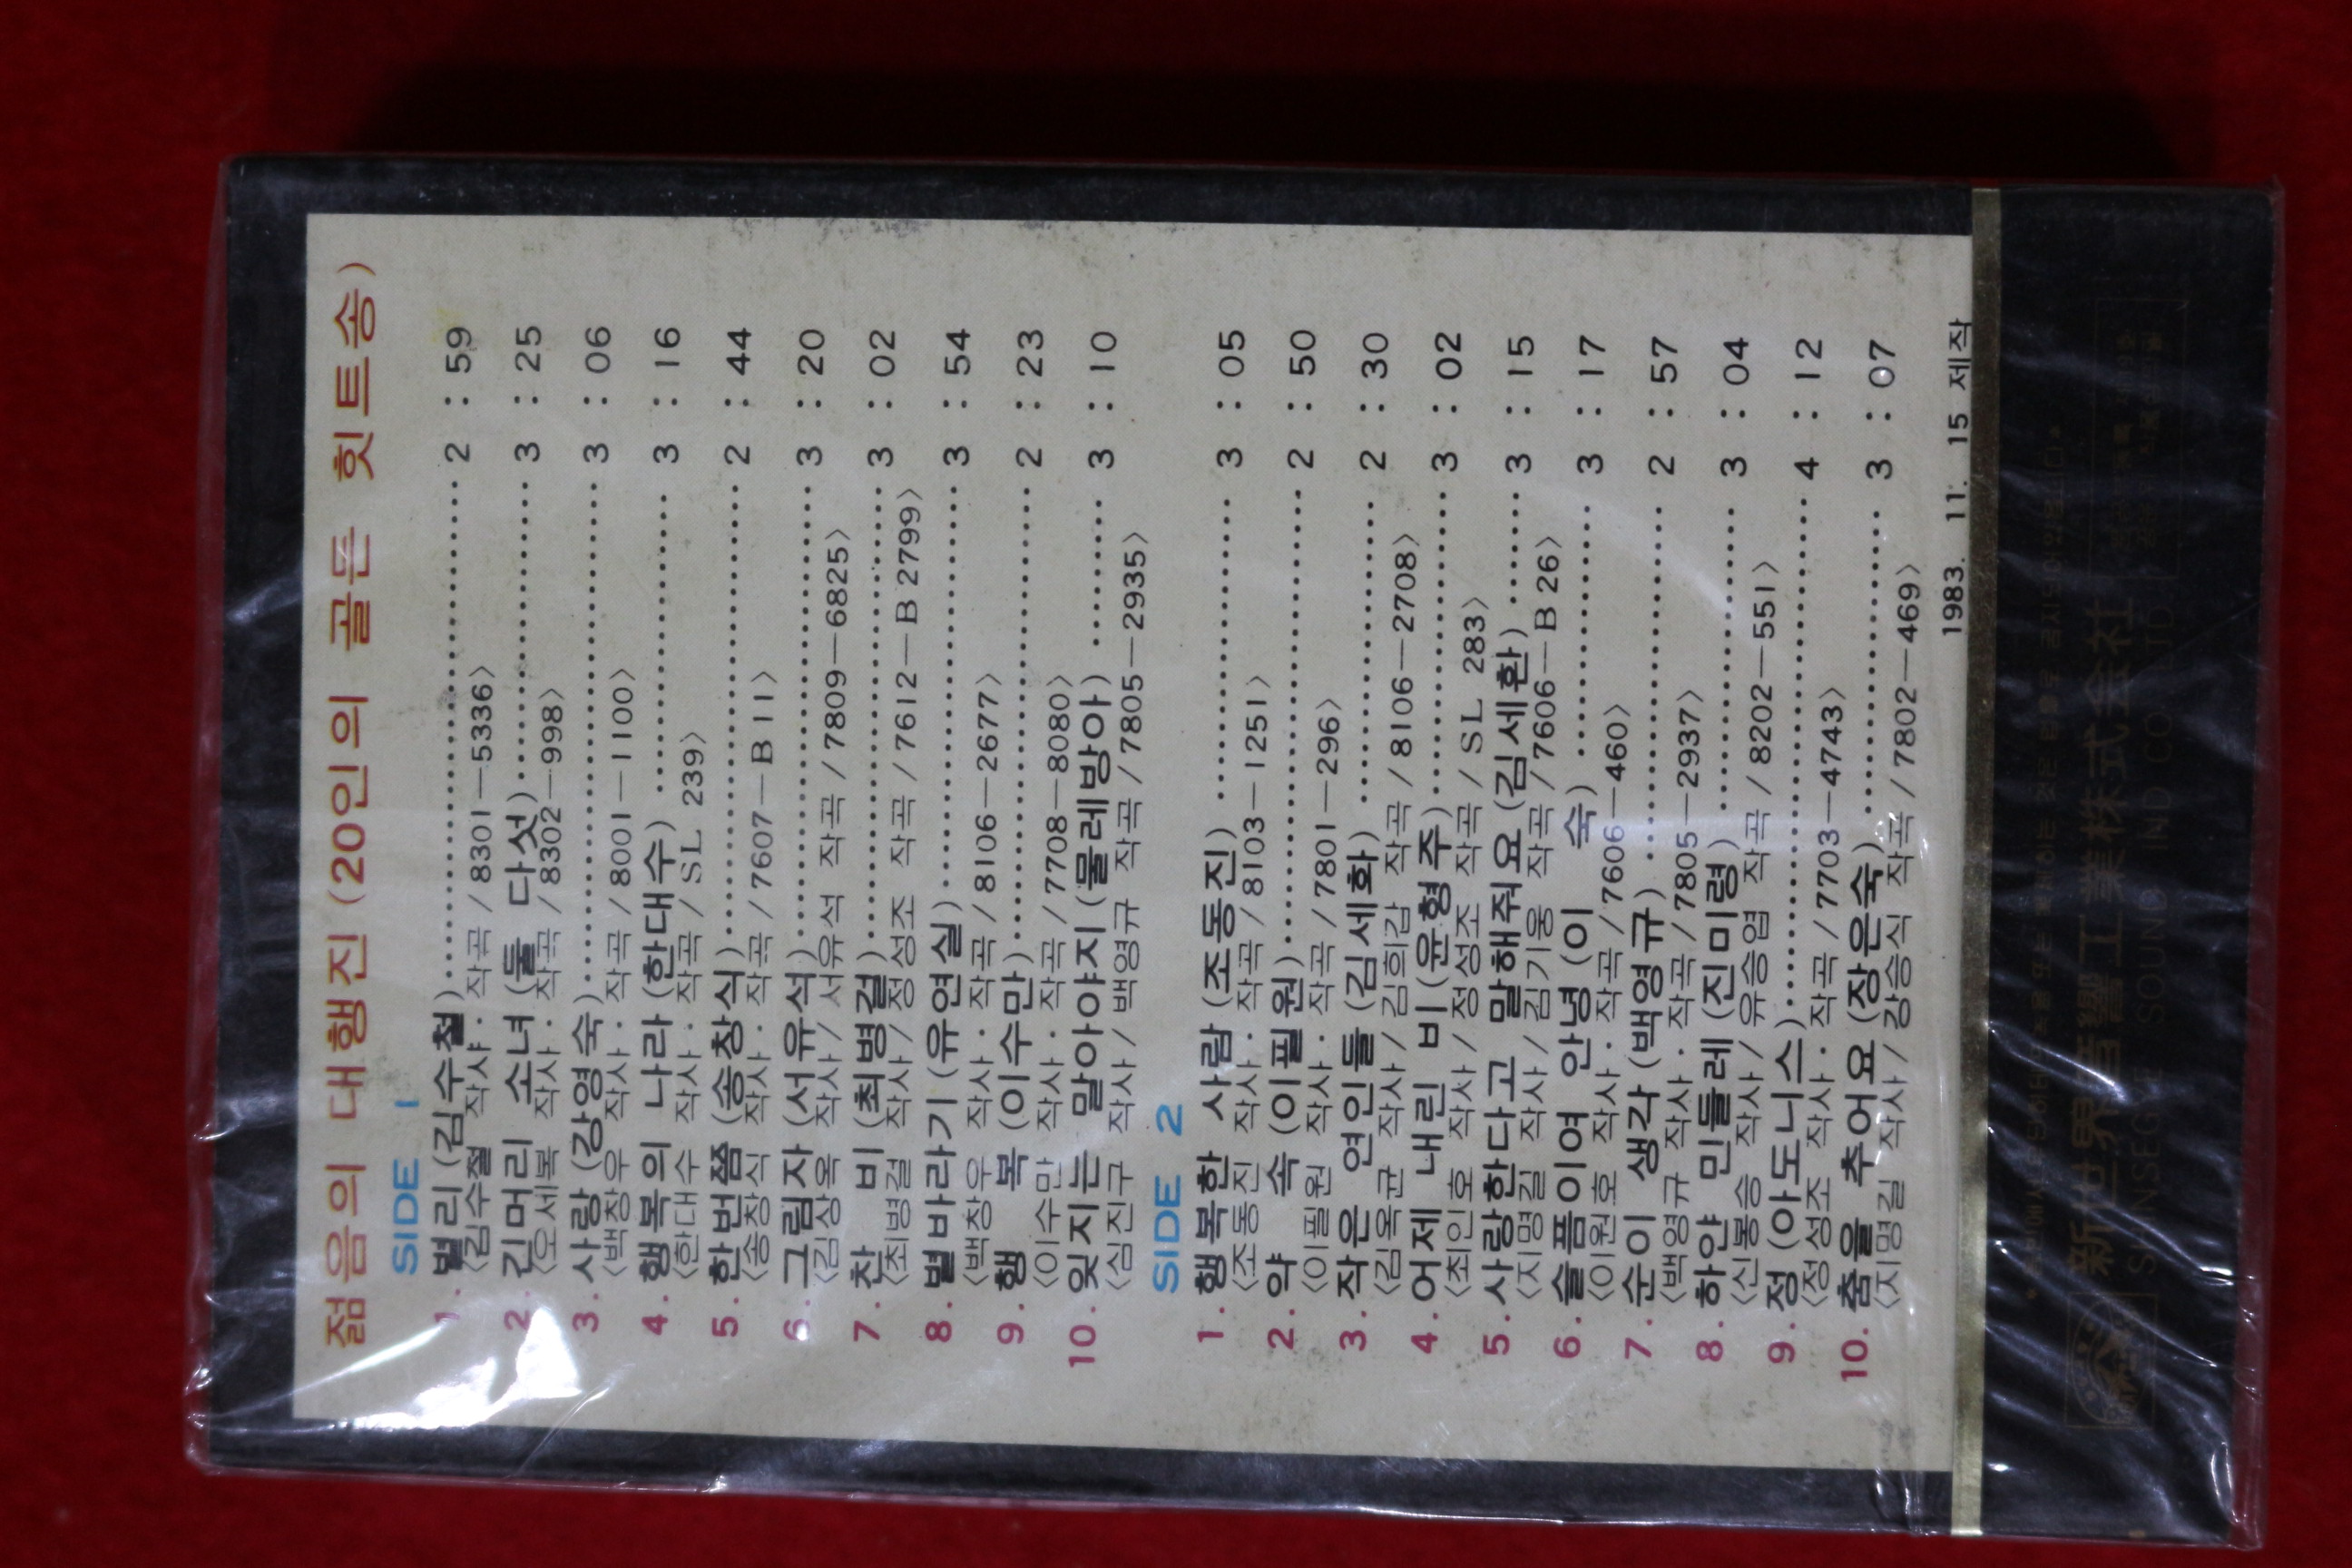 젊음의 대행진 (20인의 골든 힛트송)
SIDE 1
1. 별리 (김수철) 2 : 59
〈김수철 작사 · 작곡 / 8301—5336〉
2. 긴머리 소녀 (둘 다섯) 3 : 25
〈오세복 작사 · 작곡 / 8302—998〉
3. 사랑 (강영숙) 3 : 06
〈백창우 작사 · 작곡 / 8001—1100〉
4. 행복의 나라 (한대수) 3 : 16
〈한대수 작사 · 작곡 / SL 239〉
5. 한번쯤 (송창식) 2 : 44
〈송창식 작사 · 작곡 / 7607—B 11〉
6. 그림자 (서유석) 3 : 20
〈김상옥 작사 / 서유석 작곡 / 7809—6825〉
7. 찬 비 (최병걸) 3 : 02
〈최병걸 작사 / 정성조 작곡 / 7612—B 2799〉
8. 별바라기 (유연실) 3 : 54
〈백창우 작사 · 작곡 / 8106—2677〉
9. 행 복 (이수만) 2 : 23
〈이수만 작사 · 작곡 / 7708—8080〉
10. 잊지는 말아야지 (물레방아) 3 : 10
〈심진구 작사 / 백영규 작곡 / 7805—2935〉
SIDE 2
1. 행복한 사람 (조동진) 3 : 05
〈조동진 작사 · 작곡 / 8103—1251〉
2. 약 속 (이필원) 2 : 50
〈이필원 작사 · 작곡 / 7801—296〉
3. 작은 연인들 (김세화) 2 : 30
〈김옥균 작사 / 김희갑 작곡 / 8106—2708〉
4. 어제 내린 비 (윤형주) 3 : 02
〈최인호 작사 / 정성조 작곡 / SL 283〉
5. 사랑한다고 말해줘요 (김세환) 3 : 15
〈지명길 작사 / 김기웅 작곡 / 7606—B 26〉
6. 슬픔이여 안녕 (이 숙) 3 : 17
〈이원호 작사 · 작곡 / 7606—460〉
7. 순이 생각 (백영규) 2 : 57
〈백영규 작사 · 작곡 / 7805—2937〉
8. 하얀 민들레 (진미령) 3 : 04
〈신봉승 작사 / 유승엽 작곡 / 8202—551〉
9. 정 (아도니스) 4 : 12
〈정성조 작사 · 작곡 / 7703—4743〉
10. 춤을 추어요 (장은숙) 3 : 07
〈지명길 작사 / 강승식 작곡 / 7802—469〉
1983. 11. 15 제작
新世界音響工業株式会社
SHINSEGAE SOUND IND CO LTD